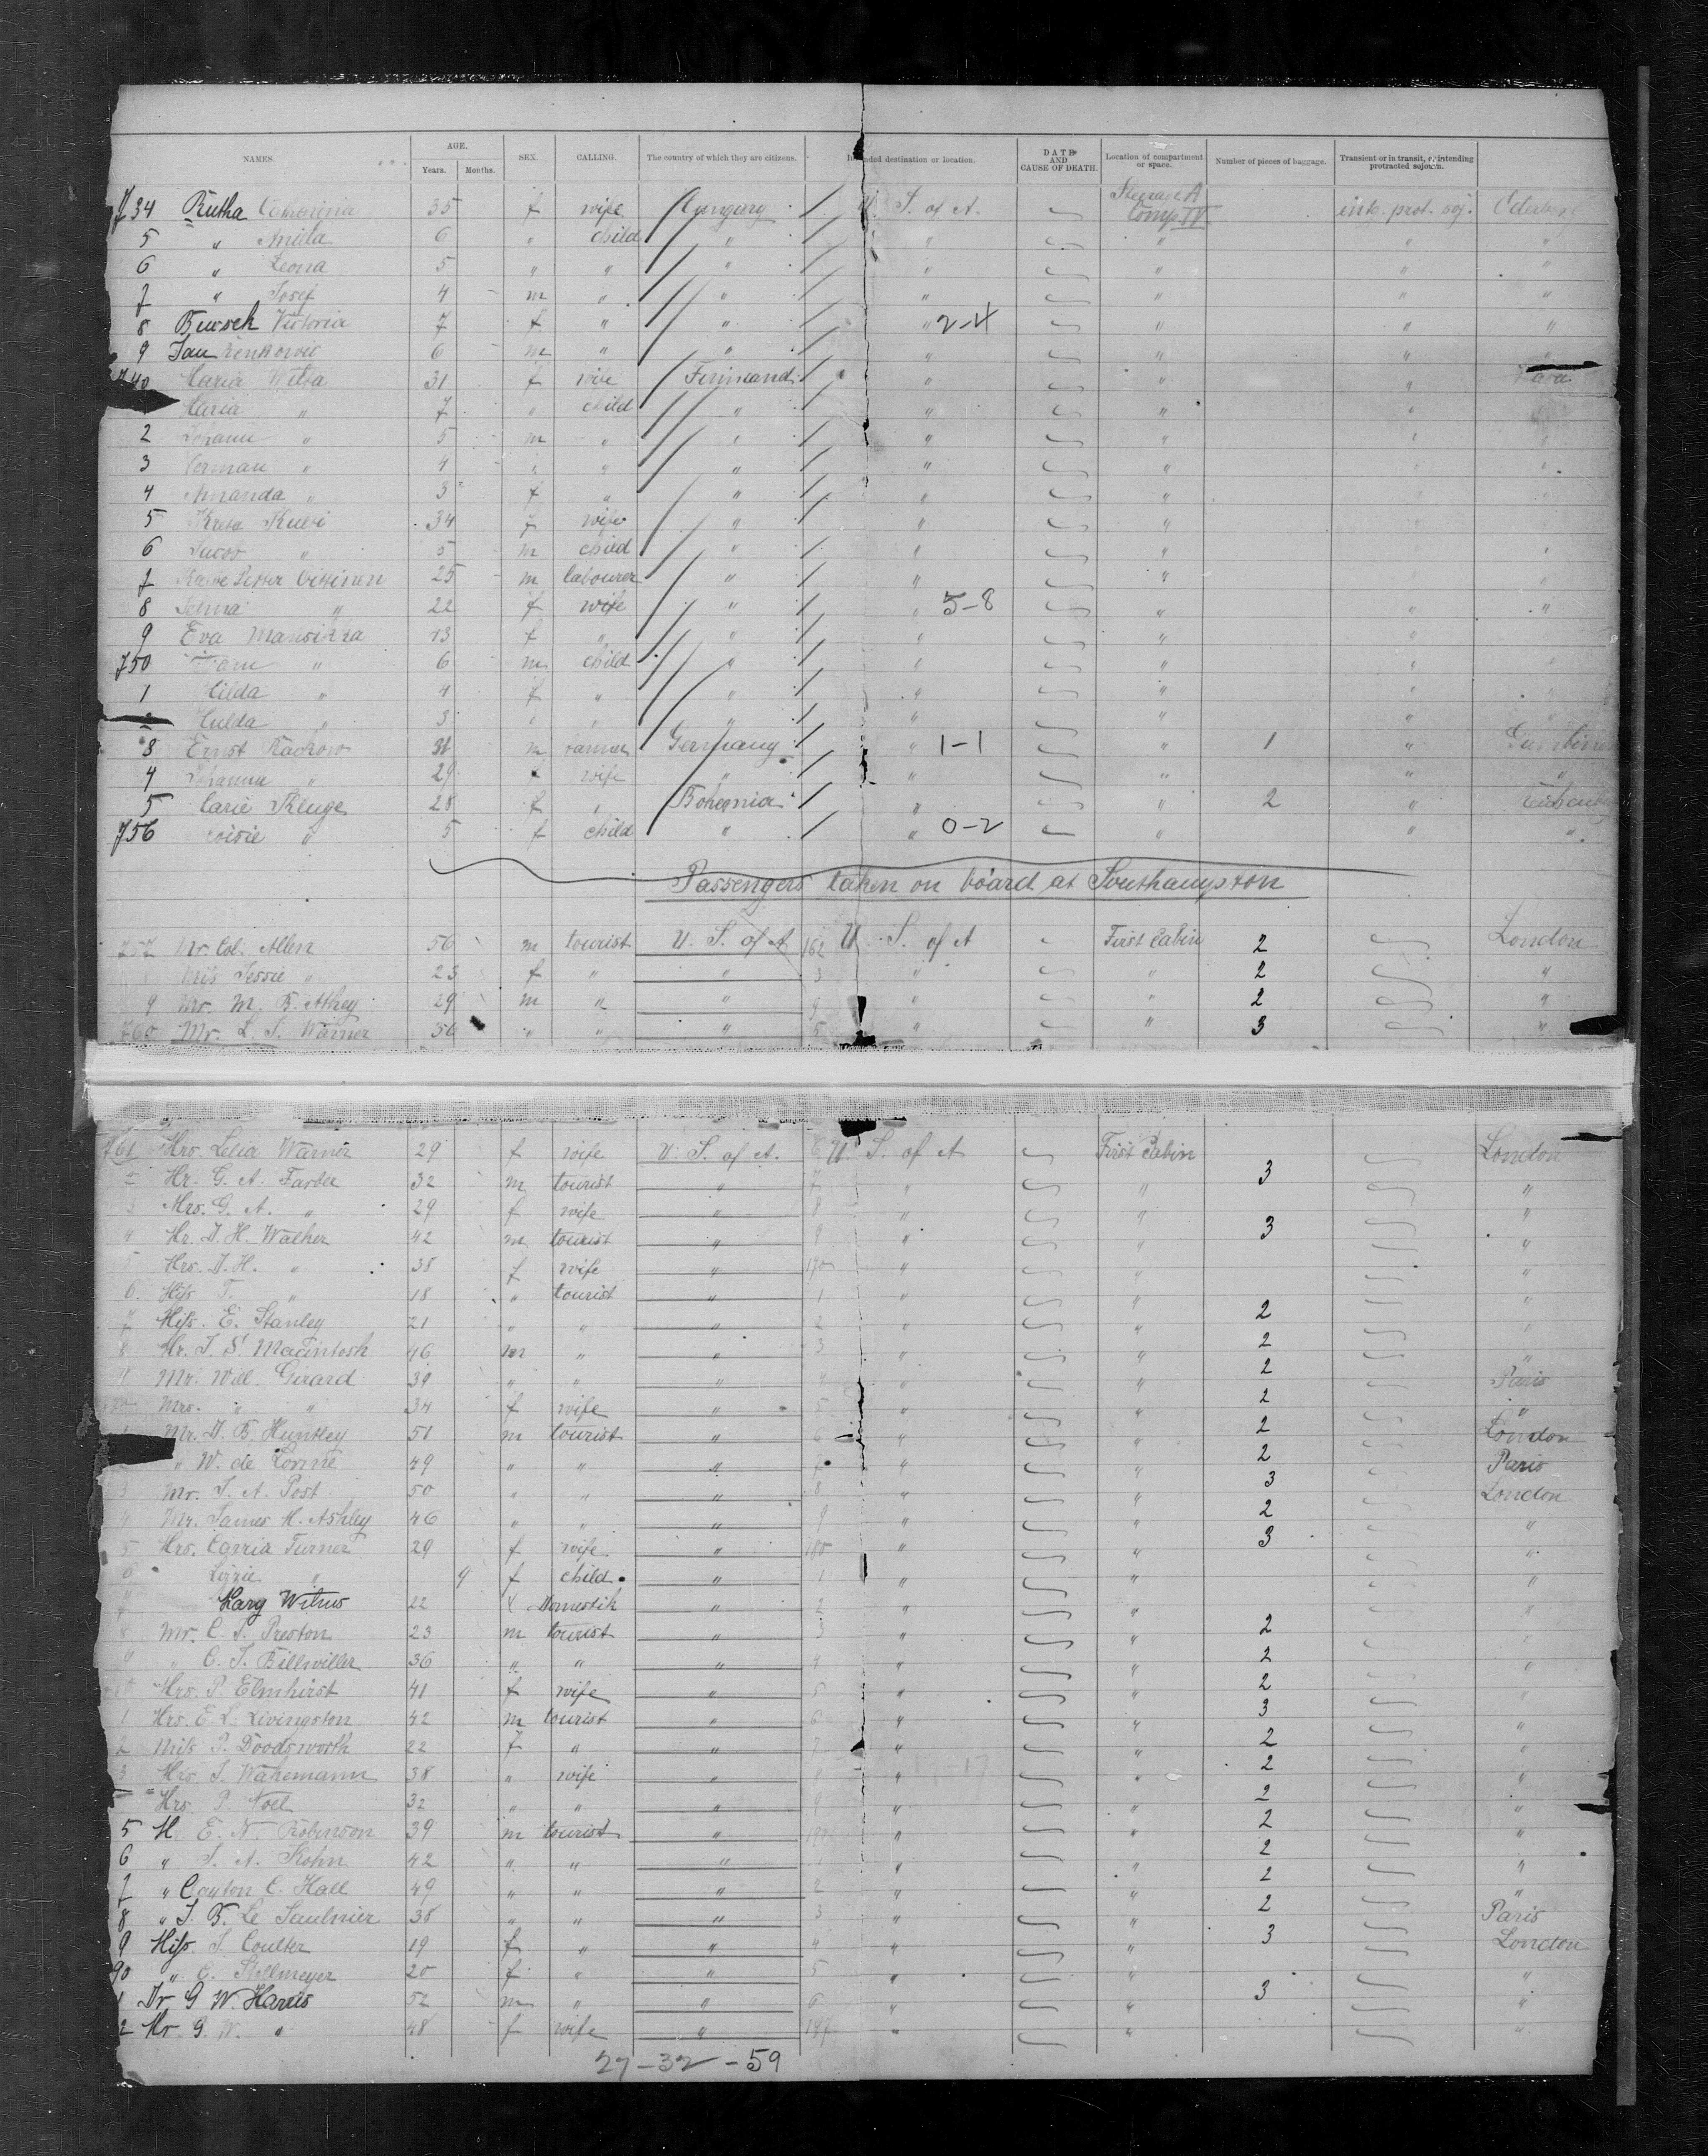 NAMES. AGE. Years. Months. SEX. CALLING. The country of which they are citizens. Intended destination or location. DATE AND CAUSE OF DEATH. Location of compartment or space. Number of pieces of baggage. Transient or in transit, or intending protracted sojourn.
734 Rutha 35 f wife Hungary U. S. of A. Steerage A Comp IV intg. prot. soj.
5 " 6 " child " " " " "
6 " Leona 5 " " " " " " "
7 " Josef 4 m " " " " " "
8 Victoria 7 f " " " 2-4 " " "
9 Jan 6 m " " " " "
740 Maria Witta 31 f wife Finnland " " "
Maria " 7 " child " " " "
2 Johann " 5 m " " " "
3 Herman " 4 " " " " " "
4 Amanda " 3 f " " " "
5 34 f wife " " "
6 Jacob " 5 m child " " "
7 25 m labourer " " "
8 Selma " 22 f wife " " 5-8 " " "
9 Eva f " " " " "
750 " 6 m child " " " " "
1 Hilda " 4 f " " " " " "
Hulda " 3 " " " " " " "
3 Ernst Rackow 31 m farmer Germany " 1-1 " 1 "
4 Johanna " 29 f wife " " " " "
5 Marie Kluge 28 f " Bohemia " " 2 "
756 " 5 f child " " 0-2 " " "
Passengers taken on board at Southampton
757 Mr. Col. Allen 56 m tourist U. S. of A 162 U. S. of A First Cabin 2 London
Miss Jessie " 23 f " " 3 " " 2 "
9 Mr. M. B. Athey 29 m " " " " 2 "
760 Mr. L. S. Warner 56 " " " 5 " " 3 "
761 Mrs. Lelia Warner 29 f wife U. S. of A. 6 U. S. of A First Cabin London
Mr. G. A. Farbee 32 m tourist " 7 " " 3 "
3 Mrs. G. A. " 29 f wife " 8 " " "
" Mr. D. H. Walker 42 m tourist " 9 " " 3 "
5 Mrs. D. H. " 38 f wife " 170 " " "
6 Miss T. " 18 " tourist " 1 " " "
7 Miss E. Stanley 21 " " " 2 " " 2 "
8 Mr. J. S. Macintosh 46 m " " 3 " " 2 "
" Mr. Will. Girard 39 " " " " " " 2 Paris
Mrs. " " 34 f wife " 5 " " 2 "
Mr. D. B. Huntley 51 m tourist " 6 " " 2 London
" W. de Lorme 49 " " " 7 " " 2 Paris
3 Mr. J. A. Post 50 " " " 8 " " 3 London
4 Mr. James H. Ashley 46 " " " 9 " " 2 "
5 Mrs. Carria Turner 29 f wife " 180 " " 3 "
6 Lizzie " 9 f child " 1 " " "
7 Mary Wilms 22 f Domestik " 2 " " "
8 Mr. C. S. Preston 23 m tourist " 3 " " 2 "
" " C. J. Billwiller 36 " " " 4 " " 2 "
Mrs. P. Elmhirst 41 f wife " 5 " " 2 "
1 Mrs. E. L. Livingston 42 m tourist " 6 " " 3 "
2 Miss P. Doodsworth 22 f " " 7 " " 2 "
3 Mrs. J. Wakemann 38 " wife " " " 2 "
Mrs. P. Noel 32 " " " 9 " " 2 "
5 M. E. N. Robinson 39 m tourist " 190 " " 2 "
6 " J. A. Kohn 42 " " " 1 " " 2 "
7 " Clayton C. Hall 49 " " " 2 " " 2 "
8 " J. B. Le Saulnier 38 " " " 3 " " 2 Paris
9 Miss J. Coulter 19 f " " 4 " " 3 London
90 " C. Stillmeyer 20 f " " 5 " " "
1 Dr G W. Harris 52 m " " 6 " " 3 "
2 Mr. G. W. " 48 f wife " 197 " " "
27-32-59